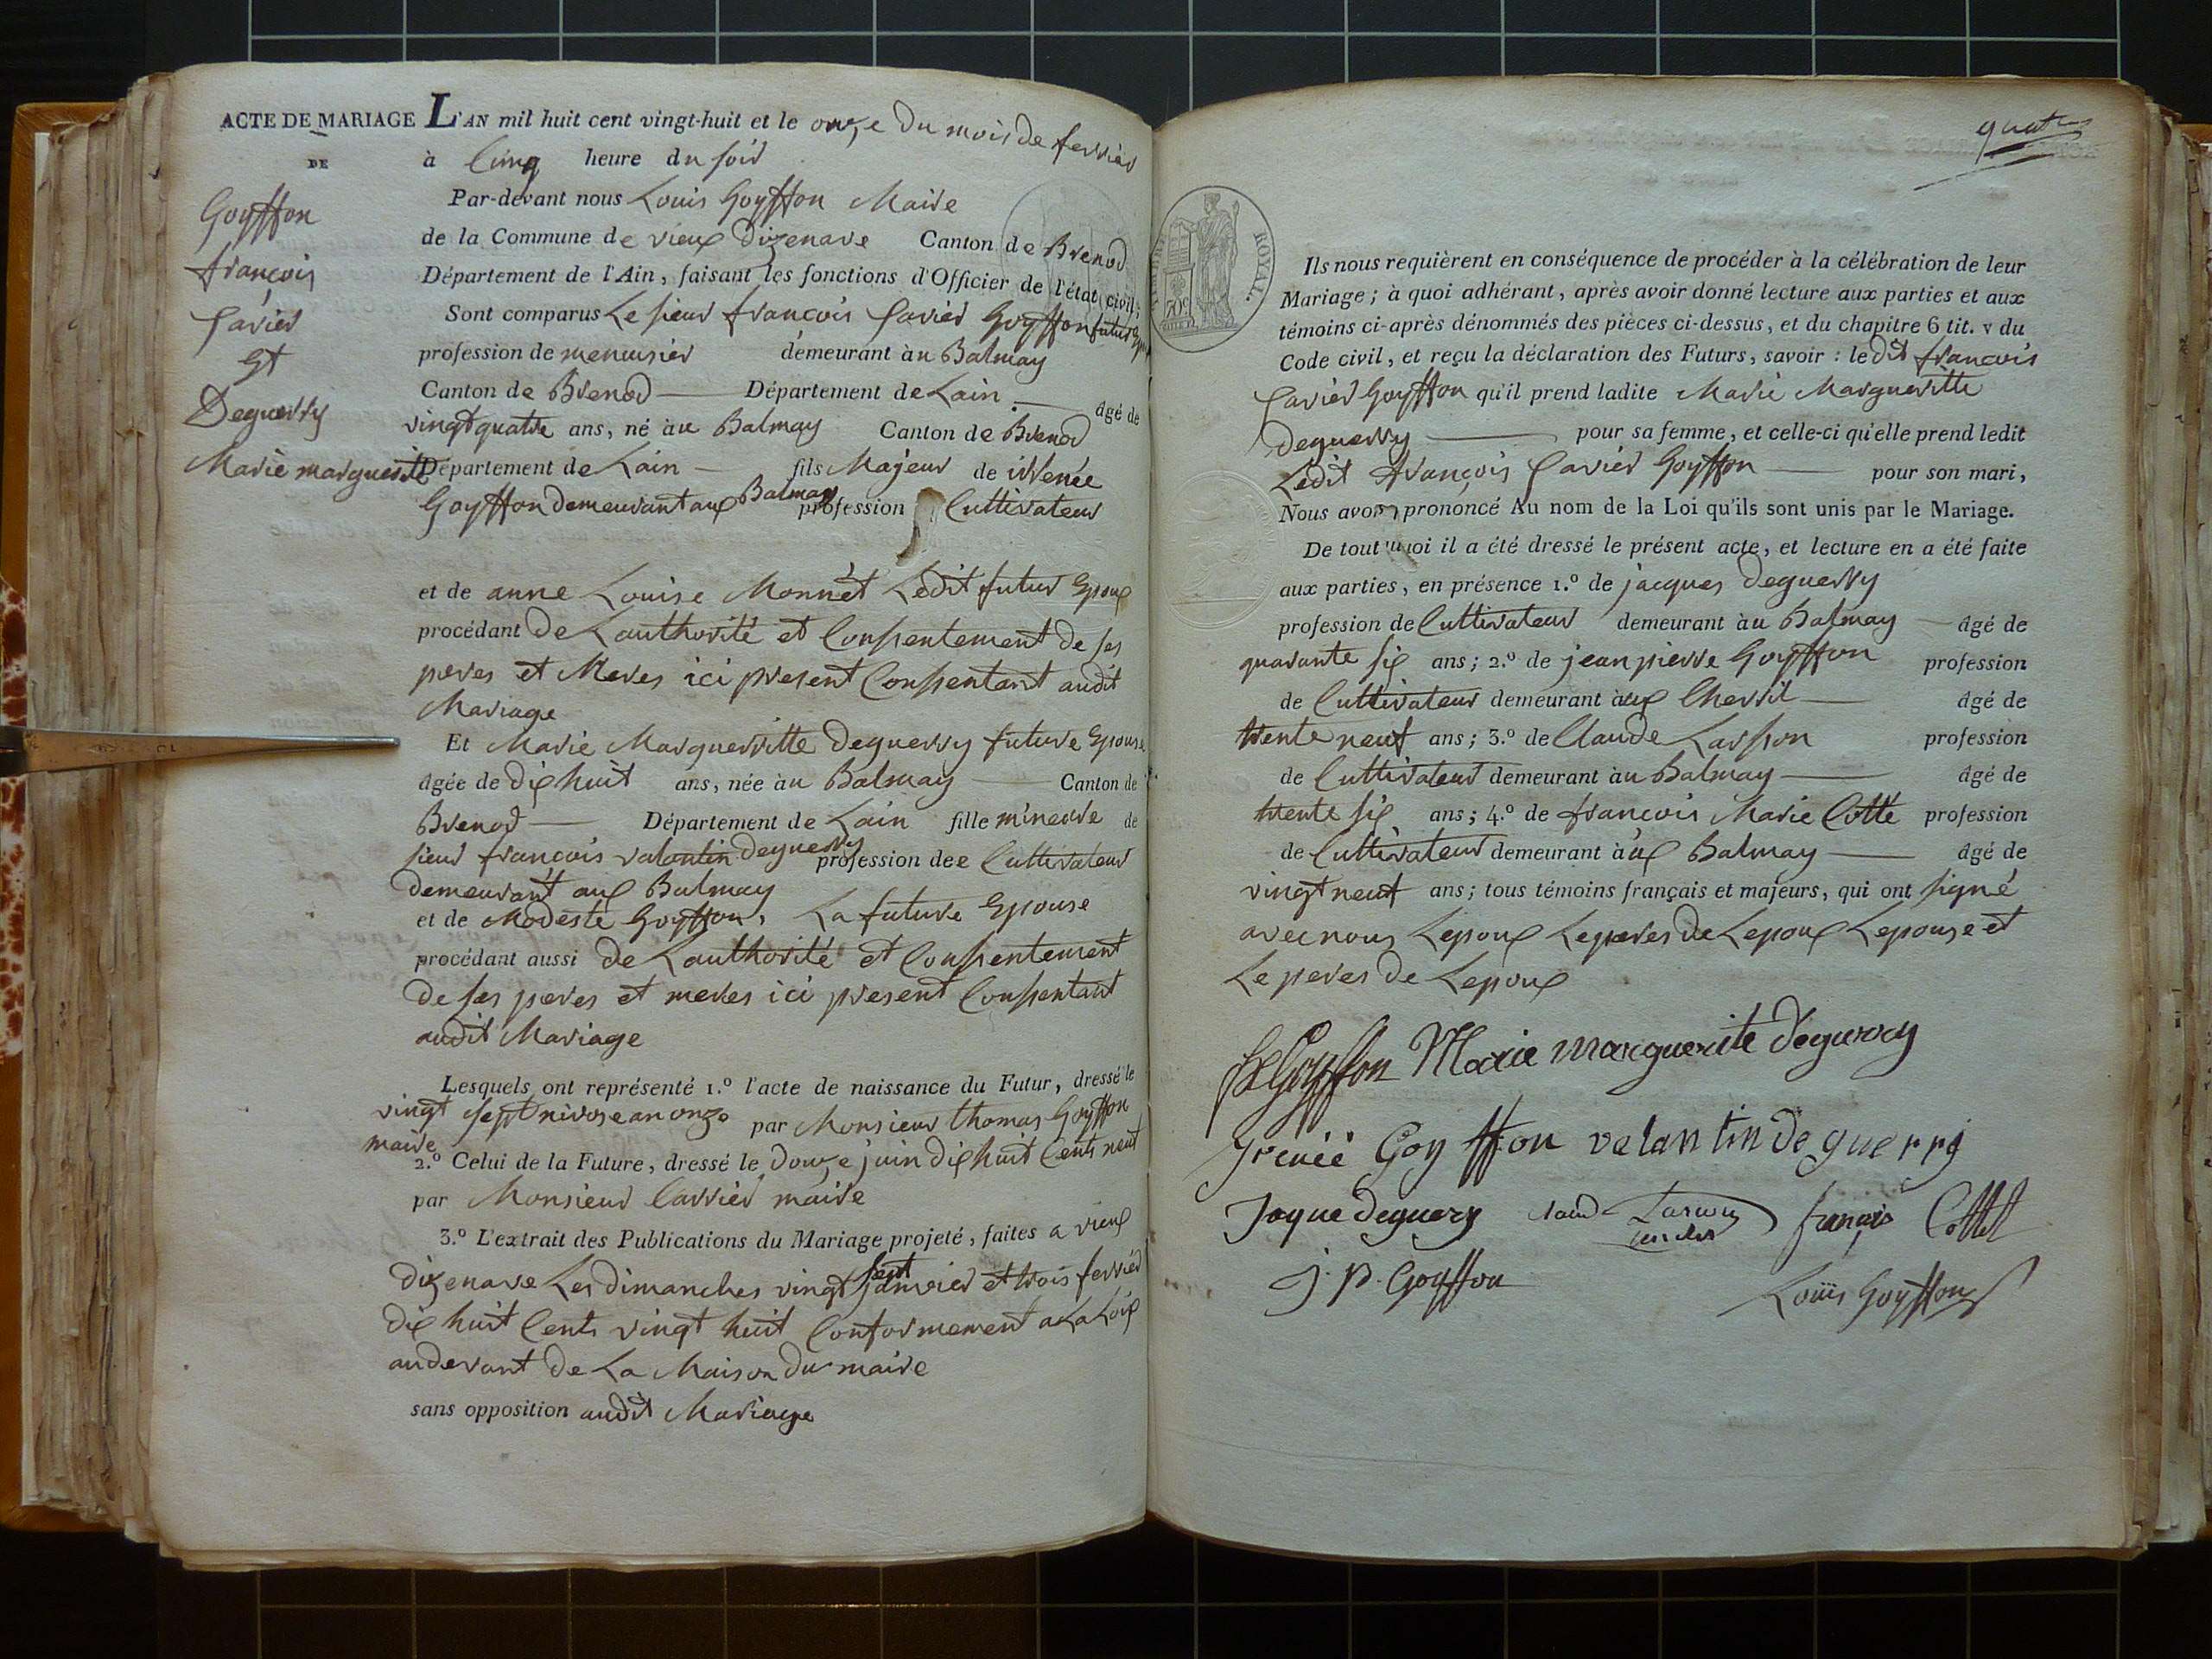 ACTE DE MARIAGE L'AN mil huit cent vingt-huit et le onze du mois de fevrier
DE à Cinq heure du soir
Par-devant nous Louis Goyffon Maire
de la Commune de vieux dizenave Canton de Brenod
Département de l'Ain, faisant les fonctions d'Officier de l'état civil;
Sont comparus Le sieur françois Cavier Goyffon futur
profession de menuisier demeurant àu Balmay
Canton de Brenod Département de Lain âgé de
vingt quatre ans, né àu Balmay Canton de Brenod
Département de Lain fils Majeur de irrenée
Goyffon demeurant aux Balmay profession Cultivateur
Goyffon
françois
Cavier
Et
Deguerry
Marie marguerite
et de anne Louise Monnet Ledit futur Epoux
procédant de Lauthorité et Consentement de ses
peres et Meres ici present Consentant audit
Mariage
Et Marie Marguerritte deguerry future Epouse
âgée de dix huit ans, née àu Balmay Canton de
Brenod Département de Lain fille mineure de
sieur françois valantin deguerry profession dee Cultivateur
demeurant aux Balmay
et de Modeste Goyffon, La future Epouse
procédant aussi de Lauthorité et Consentement
de ses peres et meres ici present Consentant
audit Mariage
Lesquels ont représenté 1.º l'acte de naissance du Futur, dressé le
vingt sept nivose an onze par Monsieur thomas Goyffon
maire
2.º Celui de la Future, dressé le douze juin dix huit Cents neuf
par Monsieur Carrier maire
3.º L'extrait des Publications du Mariage projeté, faites a vieux
dizenave Les dimanches vingt sept janvier et trois fevrier
dix huit Cents vingt huit Conformement a La Loix
audevant de La Maison du maire
sans opposition audit Mariage
quatre
ROYAL.
50c
Ils nous requièrent en conséquence de procéder à la célébration de leur
Mariage; à quoi adhérant, après avoir donné lecture aux parties et aux
témoins ci-après dénommés des pièces ci-dessus, et du chapitre 6 tit. v du
Code civil, et reçu la déclaration des Futurs, savoir : le dit francois
Cavier Goyffon qu'il prend ladite Marie Margueritte
deguerry pour sa femme, et celle-ci qu'elle prend ledit
Ledit François Cavier Goyffon pour son mari,
Nous avons prononcé Au nom de la Loi qu'ils sont unis par le Mariage.
De tout quoi il a été dressé le présent acte, et lecture en a été faite
aux parties, en présence 1.º de jacques deguerry
profession de Cultivateur demeurant àu Balmay âgé de
quarante six ans; 2.º de jean pierre Goyffon profession
de Cultivateur demeurant àux Cherril âgé de
trente neuf ans; 3.º de Claude Larson profession
de Cultivateur demeurant àu Balmay âgé de
trente six ans; 4.º de francois Marie Cotte profession
de Cultivateur demeurant àux Balmay âgé de
vingt neuf ans; tous témoins français et majeurs, qui ont signé
avec nous Lepoux Le peres de Lepoux Lepouse et
Le peres de Lepoux
Goyffon Marie marguerite deguerry
Irenée Goyffon velantin deguerri
Jaque deguery françois Cottet
J. P. Goyffon
Louis Goyffon